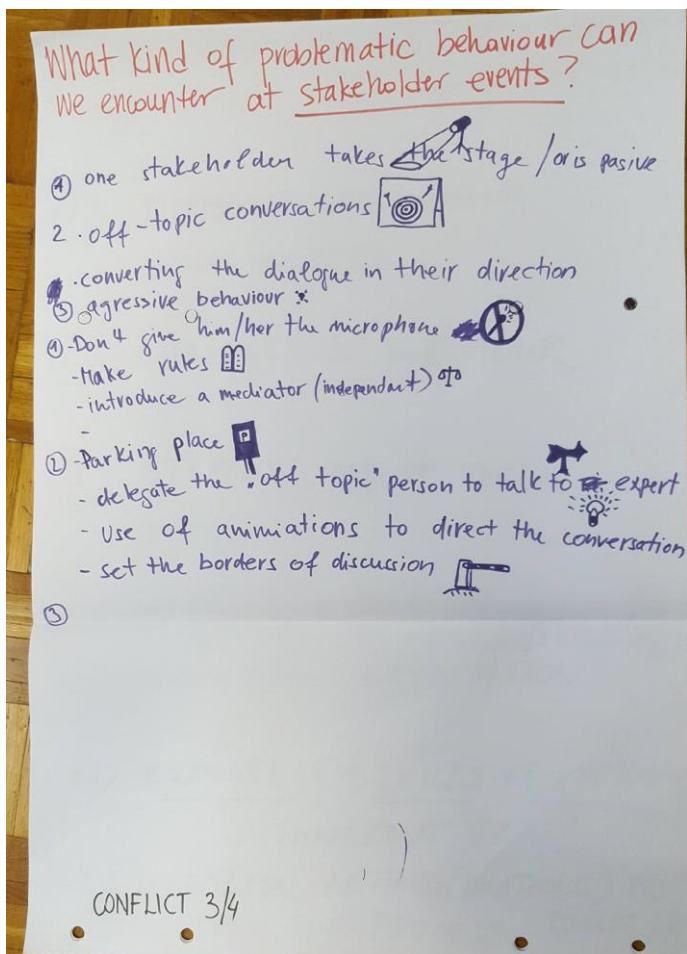 What kind of problematic behaviour can
we encounter at stakeholder events?
① one stakeholder takes the stage / or is pasive
2. off-topic conversations
. converting the dialogue in their direction
③ agressive behaviour
① - Don't give him/her the microphone
- Make rules
- introduce a mediator (independant)
-
② - Parking place P
- delegate the "off topic" person to talk to expert
- use of animiations to direct the conversation
- set the borders of discussion
③
CONFLICT 3/4